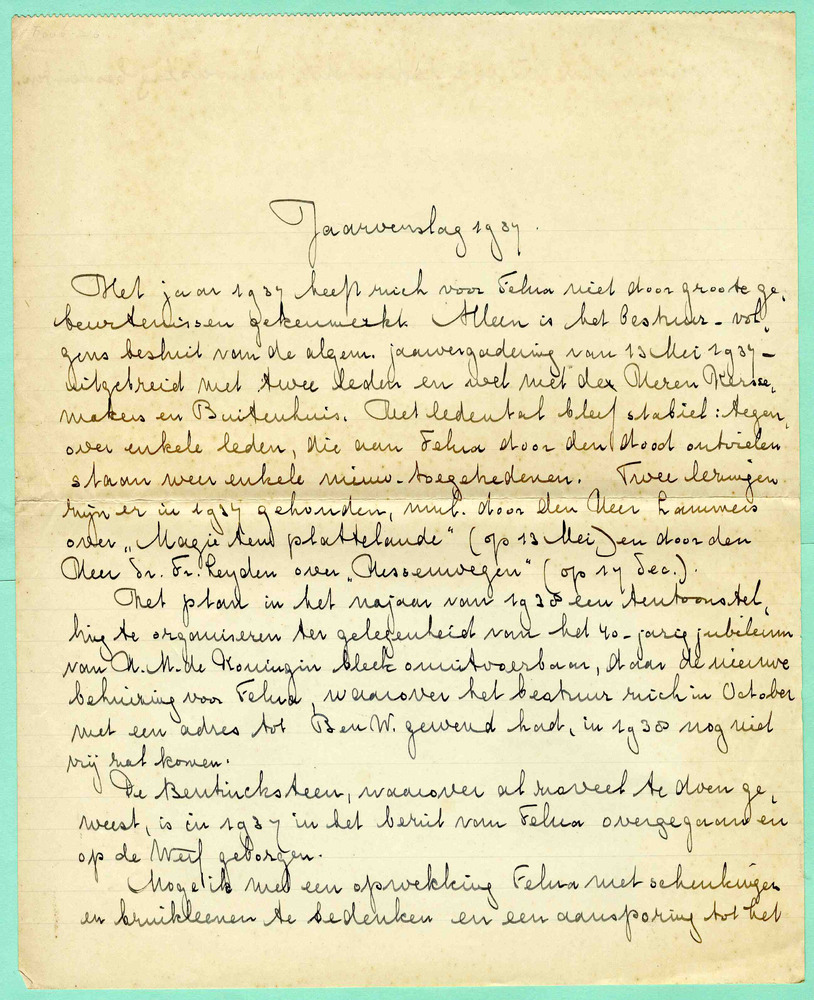 Jaarverslag 1937.
Het jaar 1937 heeft zich voor Felua niet door groote ge-
beurtenissen gekenmerkt. Alleen is het bestuur - vol-
gens besluit van de algem. jaarvergadering van 13 Mei 1937 -
uitgebreid met twee leden en wel met de Heeren Kersse-
makers en Buitenhuis. Het ledental bleef stabiel: tegen-
over enkele leden, die aan Felua door den dood ontvielen
staan weer enkele nieuw-toegetredenen. Twee lezingen
zijn er in 1937 gehouden, nml. door den Heer Lammers
over „Magie ten plattelande" (op 13 Mei) en door den
Heer Dr. Fr. Leyden over „Hessenwegen" (op 17 Dec.).
Het plan in het najaar van 1938 een tentoonstel-
ling te organiseren ter gelegenheid van het 40-jarig jubileum
van H.M. de Koningin bleek onuitvoerbaar, daar de nieuwe
behuizing voor Felua, waarover het bestuur zich in October
met een adres tot B en W. gewend had, in 1938 nog niet
vrij zal komen.
De Bentincksteen, waarover al zooveel te doen ge-
weest, is in 1937 in het bezit van Felua overgegaan en
op de Werf geborgen.
Moge ik met een opwekking Felua met schenkingen
en bruikleenen te bedenken en een aansporing tot het